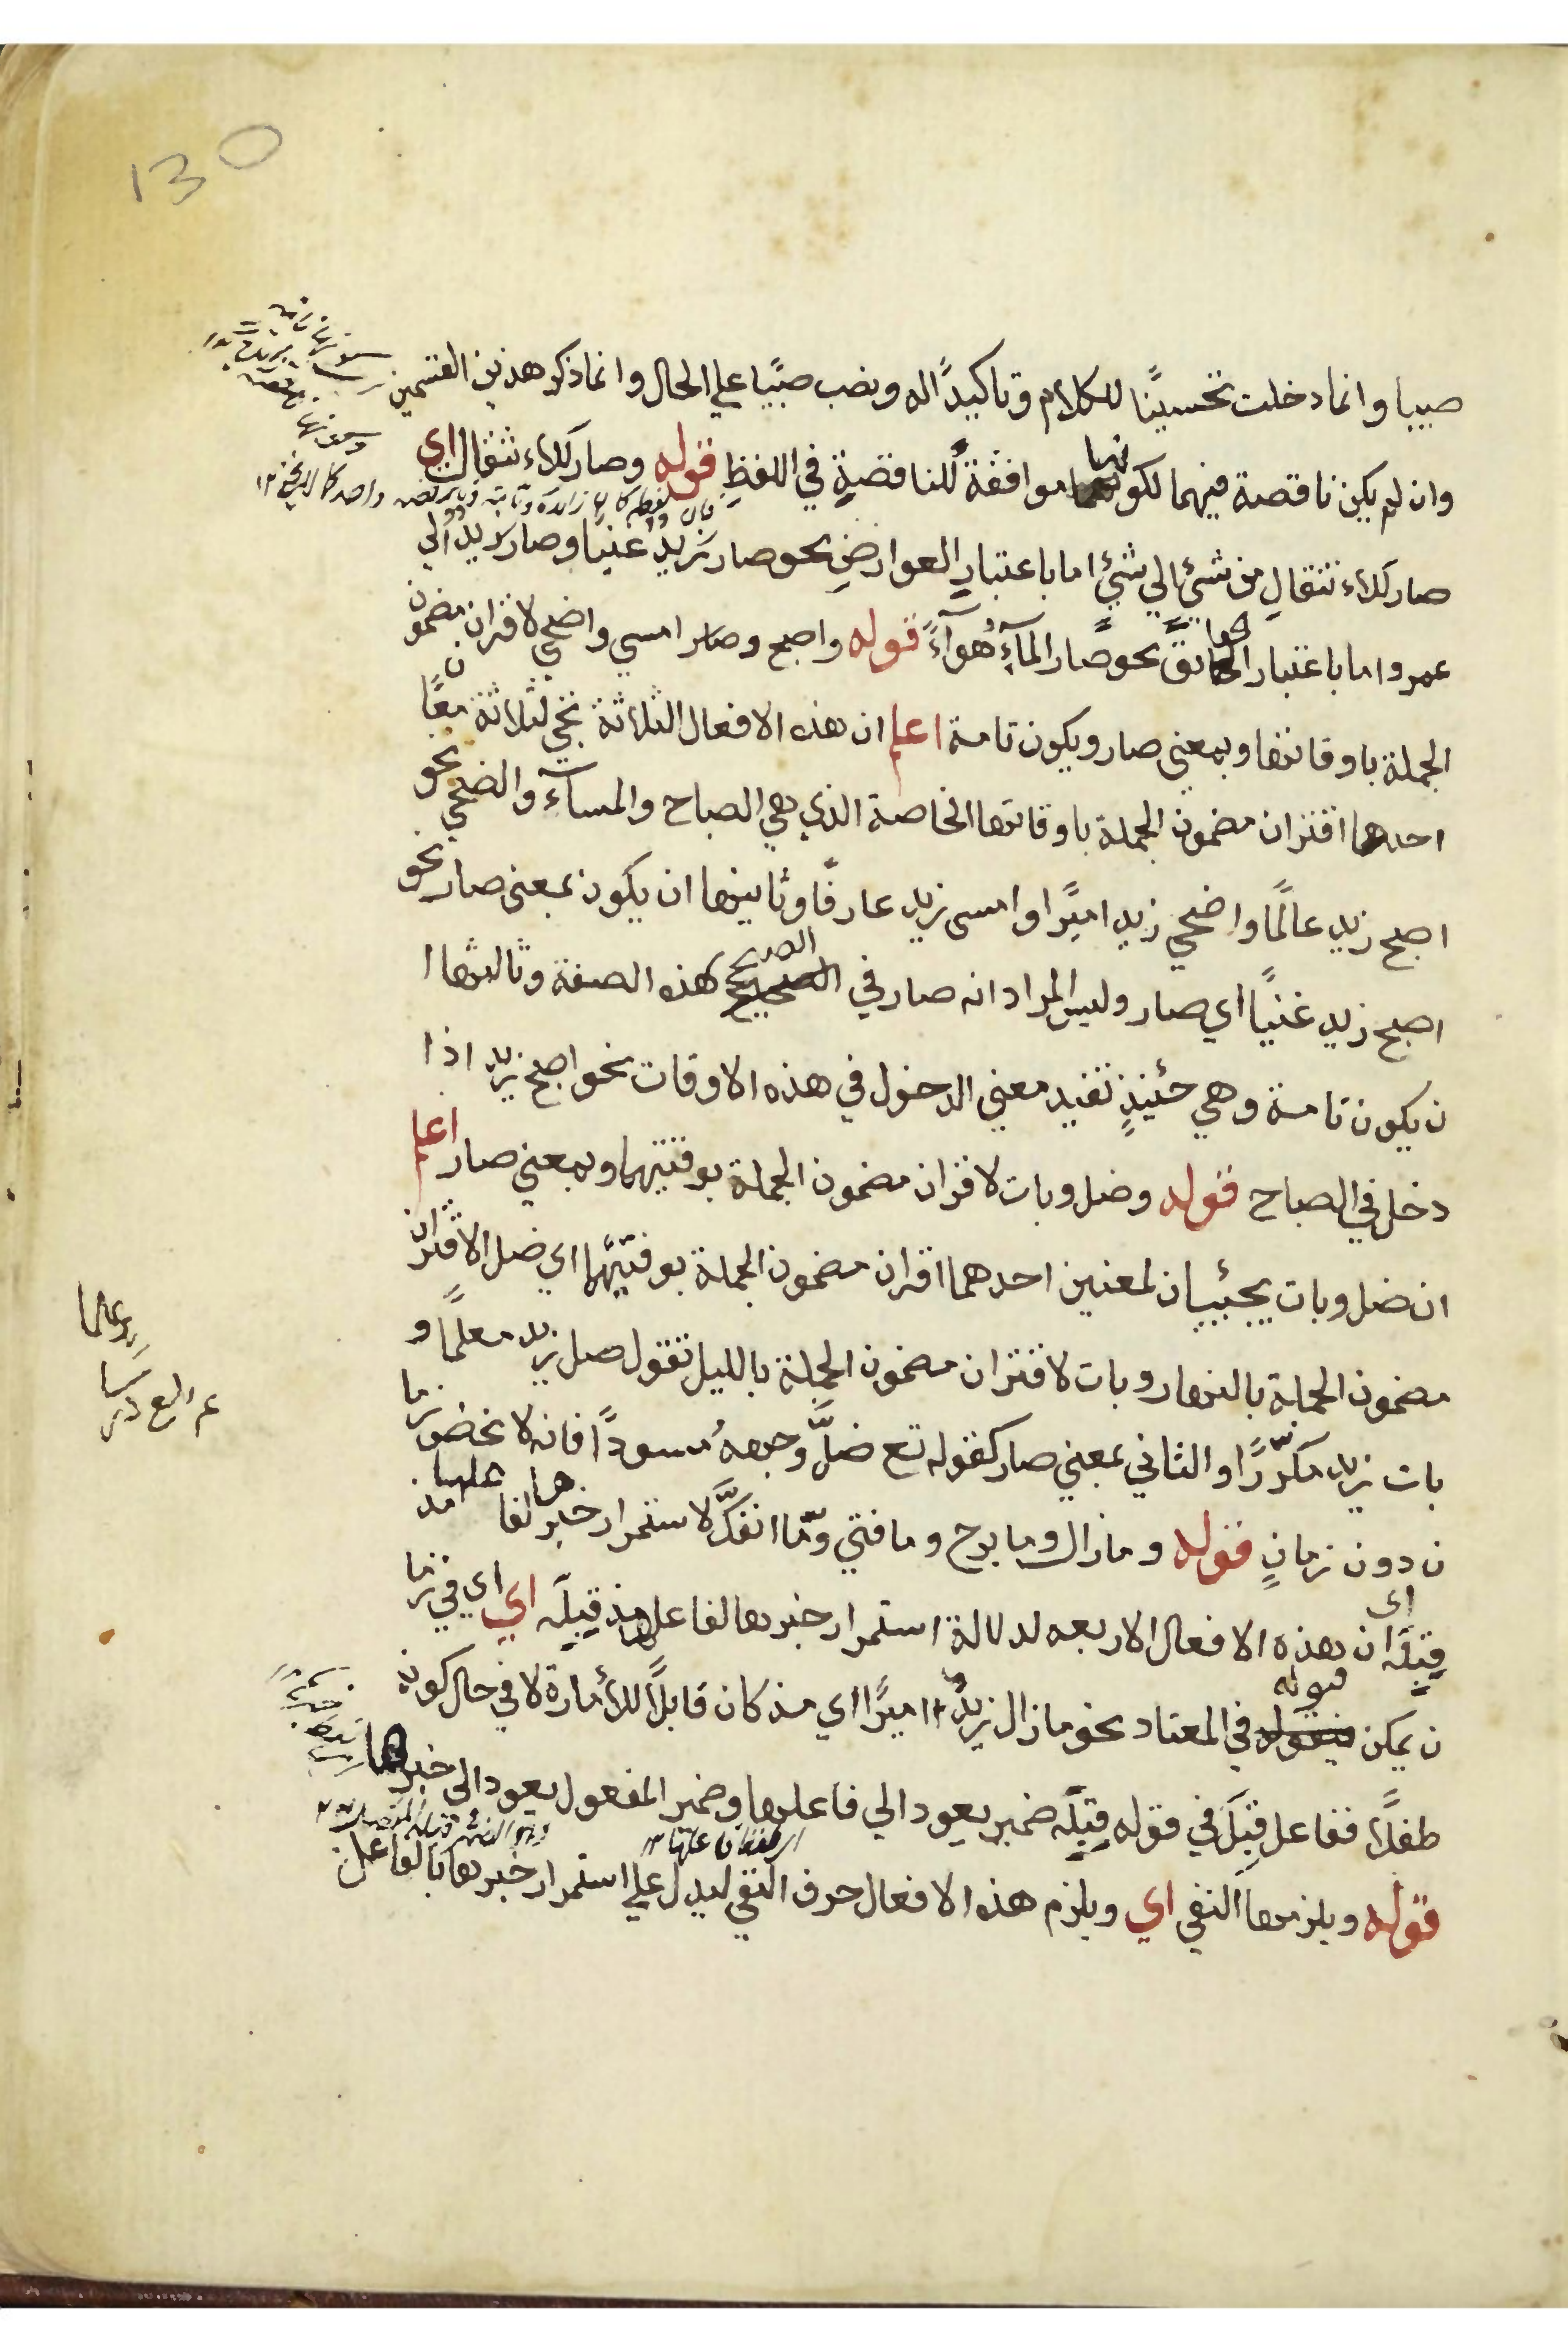 130
صبيا وانما دخلت تحسينًا للكلام وتاكيدًا له ونصب صبيًّا علي الحال وانما ذكر هذين القسمين
وان لم يكن ناقصة فيهما لكونها موافقة للناقصة في اللفظ قوله وصار للاءنتقال اي
صار للاءنتقال من شئ الي شئ اما باعتبار العوارض نحو صار زيد غنيا وصار زيد الي
عمرو اما باعتبار الحقائق نحو صار المآء هوآءً قوله واصبح وصار امسي واضحي لاقتران مضمون
الجملة باوقاتها وبمعني صار ويكون تامة اعلم ان هذه الافعال الثلاثة تجئ لثلاثة معان
احدهما اقتران مضمون الجملة باوقاتها الخاصة الذي هي الصباح والمسآء والضحي نحو
اصبح زيد عالمًا واضحي زيد اميرًا وامسى زيد عارفًا وثانيها ان يكون بمعنى صار نحو
اصبح زيد غنيًا اي صار وليس المراد انه صار في الصبح هذه الصفة وثالثها ا
ن يكون تامة وهي حئنيذٍ تفيد معني الدخول في هذه الاوقات نحو اصبح زيد اذا
دخل في الصباح قوله وضل وبات لاقتران مضمون الجملة بوقتيهما وبمعني صار اعلم
ان ضل وبات يجيئان لمعنين احدهما اقتران مضمون الجملة بوقتيهما اي ضل الاقتران
مضمون الجملة بالنهار وبات لاقتران مضمون الجملة بالليل تقول ضل زيد معلمًا و
بات زيد مكرّرًا والثاني بمعني صار كقوله تع ضلّ وجهه مسودًا فانه لا يختص بزما
ن دون زمانٍ قوله وما زال وما برح وما فتي وما انفكّ لاستمرار خبرها لفاعلها مذ
قبِلَه اي ان هذه الافعال الاربعه لدلالة استمرار خبرها لفاعلها مذ قبِلَه اي اي في زما
ن يمكن قبوله في المعتاد نحو ما زال زيدٌ اميرًا اي مذ كان قابلًا للأمارة لا في حال كونه
طفلًا ففاعل قبِلَ في قوله قبِلَه ضمير يعود الي فاعلها وضمير المفعول يعود الى خبرها
قوله ويلزمها النفي اي ويلزم هذه الافعال حرف النفي ليدل علي استمرار خبرها بالفاعل